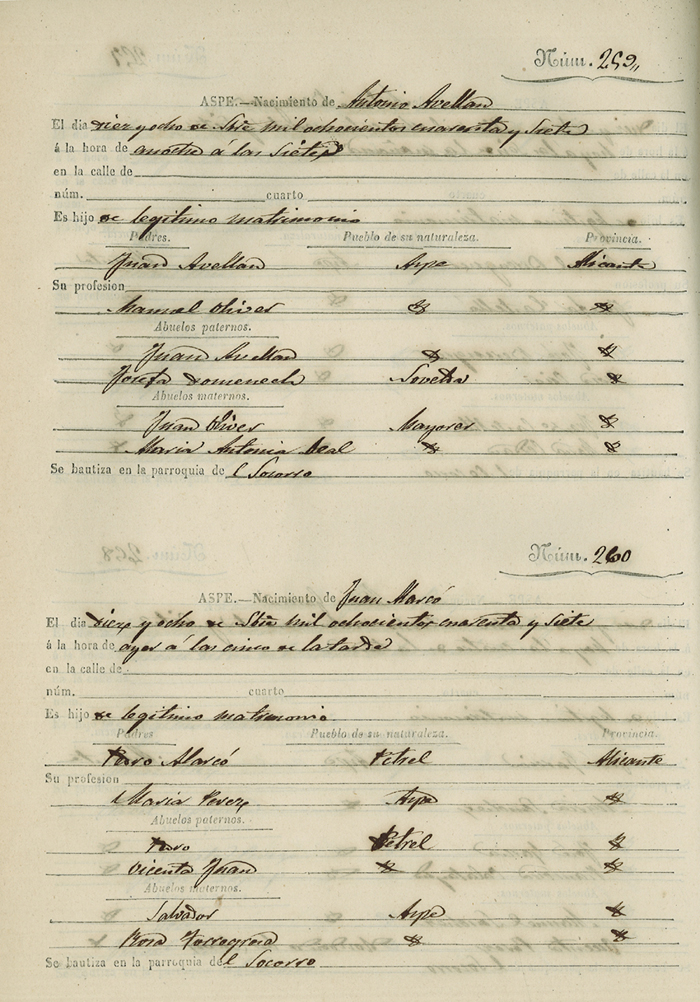 Núm. 259,,
ASPE.—Nacimiento de Antonio Avellan
El dia diez y ocho de Sbre mil ochocientos cuarenta y siete
á la hora de anoche á las siete
en la calle de
núm. cuarto
Es hijo de legitimo matrimonio
Padres. Pueblo de su naturaleza. Provincia.
Juan Avellan Aspe Alicante
Su profesion
Manuel Oliver
Abuelos paternos.
Juan Avellan
Josefa Domenech
Abuelos maternos.
Juan Oliver
Maria Antonia
Se bautiza en la parroquia de l Socorro
Núm. 260
ASPE.—Nacimiento de Juan Alarcó
El dia diez y ocho de Sbre mil ochocientos cuarenta y siete
á la hora de ayer á las cinco de la tarde
en la calle de
núm. cuarto
Es hijo de legitimo matrimonio
Padres Pueblo de su naturaleza. Provincia.
Pedro Alarcó Petrel Alicante
Su profesion
Maria Perez Aspe
Abuelos paternos.
Pedro Petrel
Vicenta Juan
Abuelos maternos.
Salvador Aspe
Rosa Torregrosa
Se bautiza en la parroquia de l Socorro